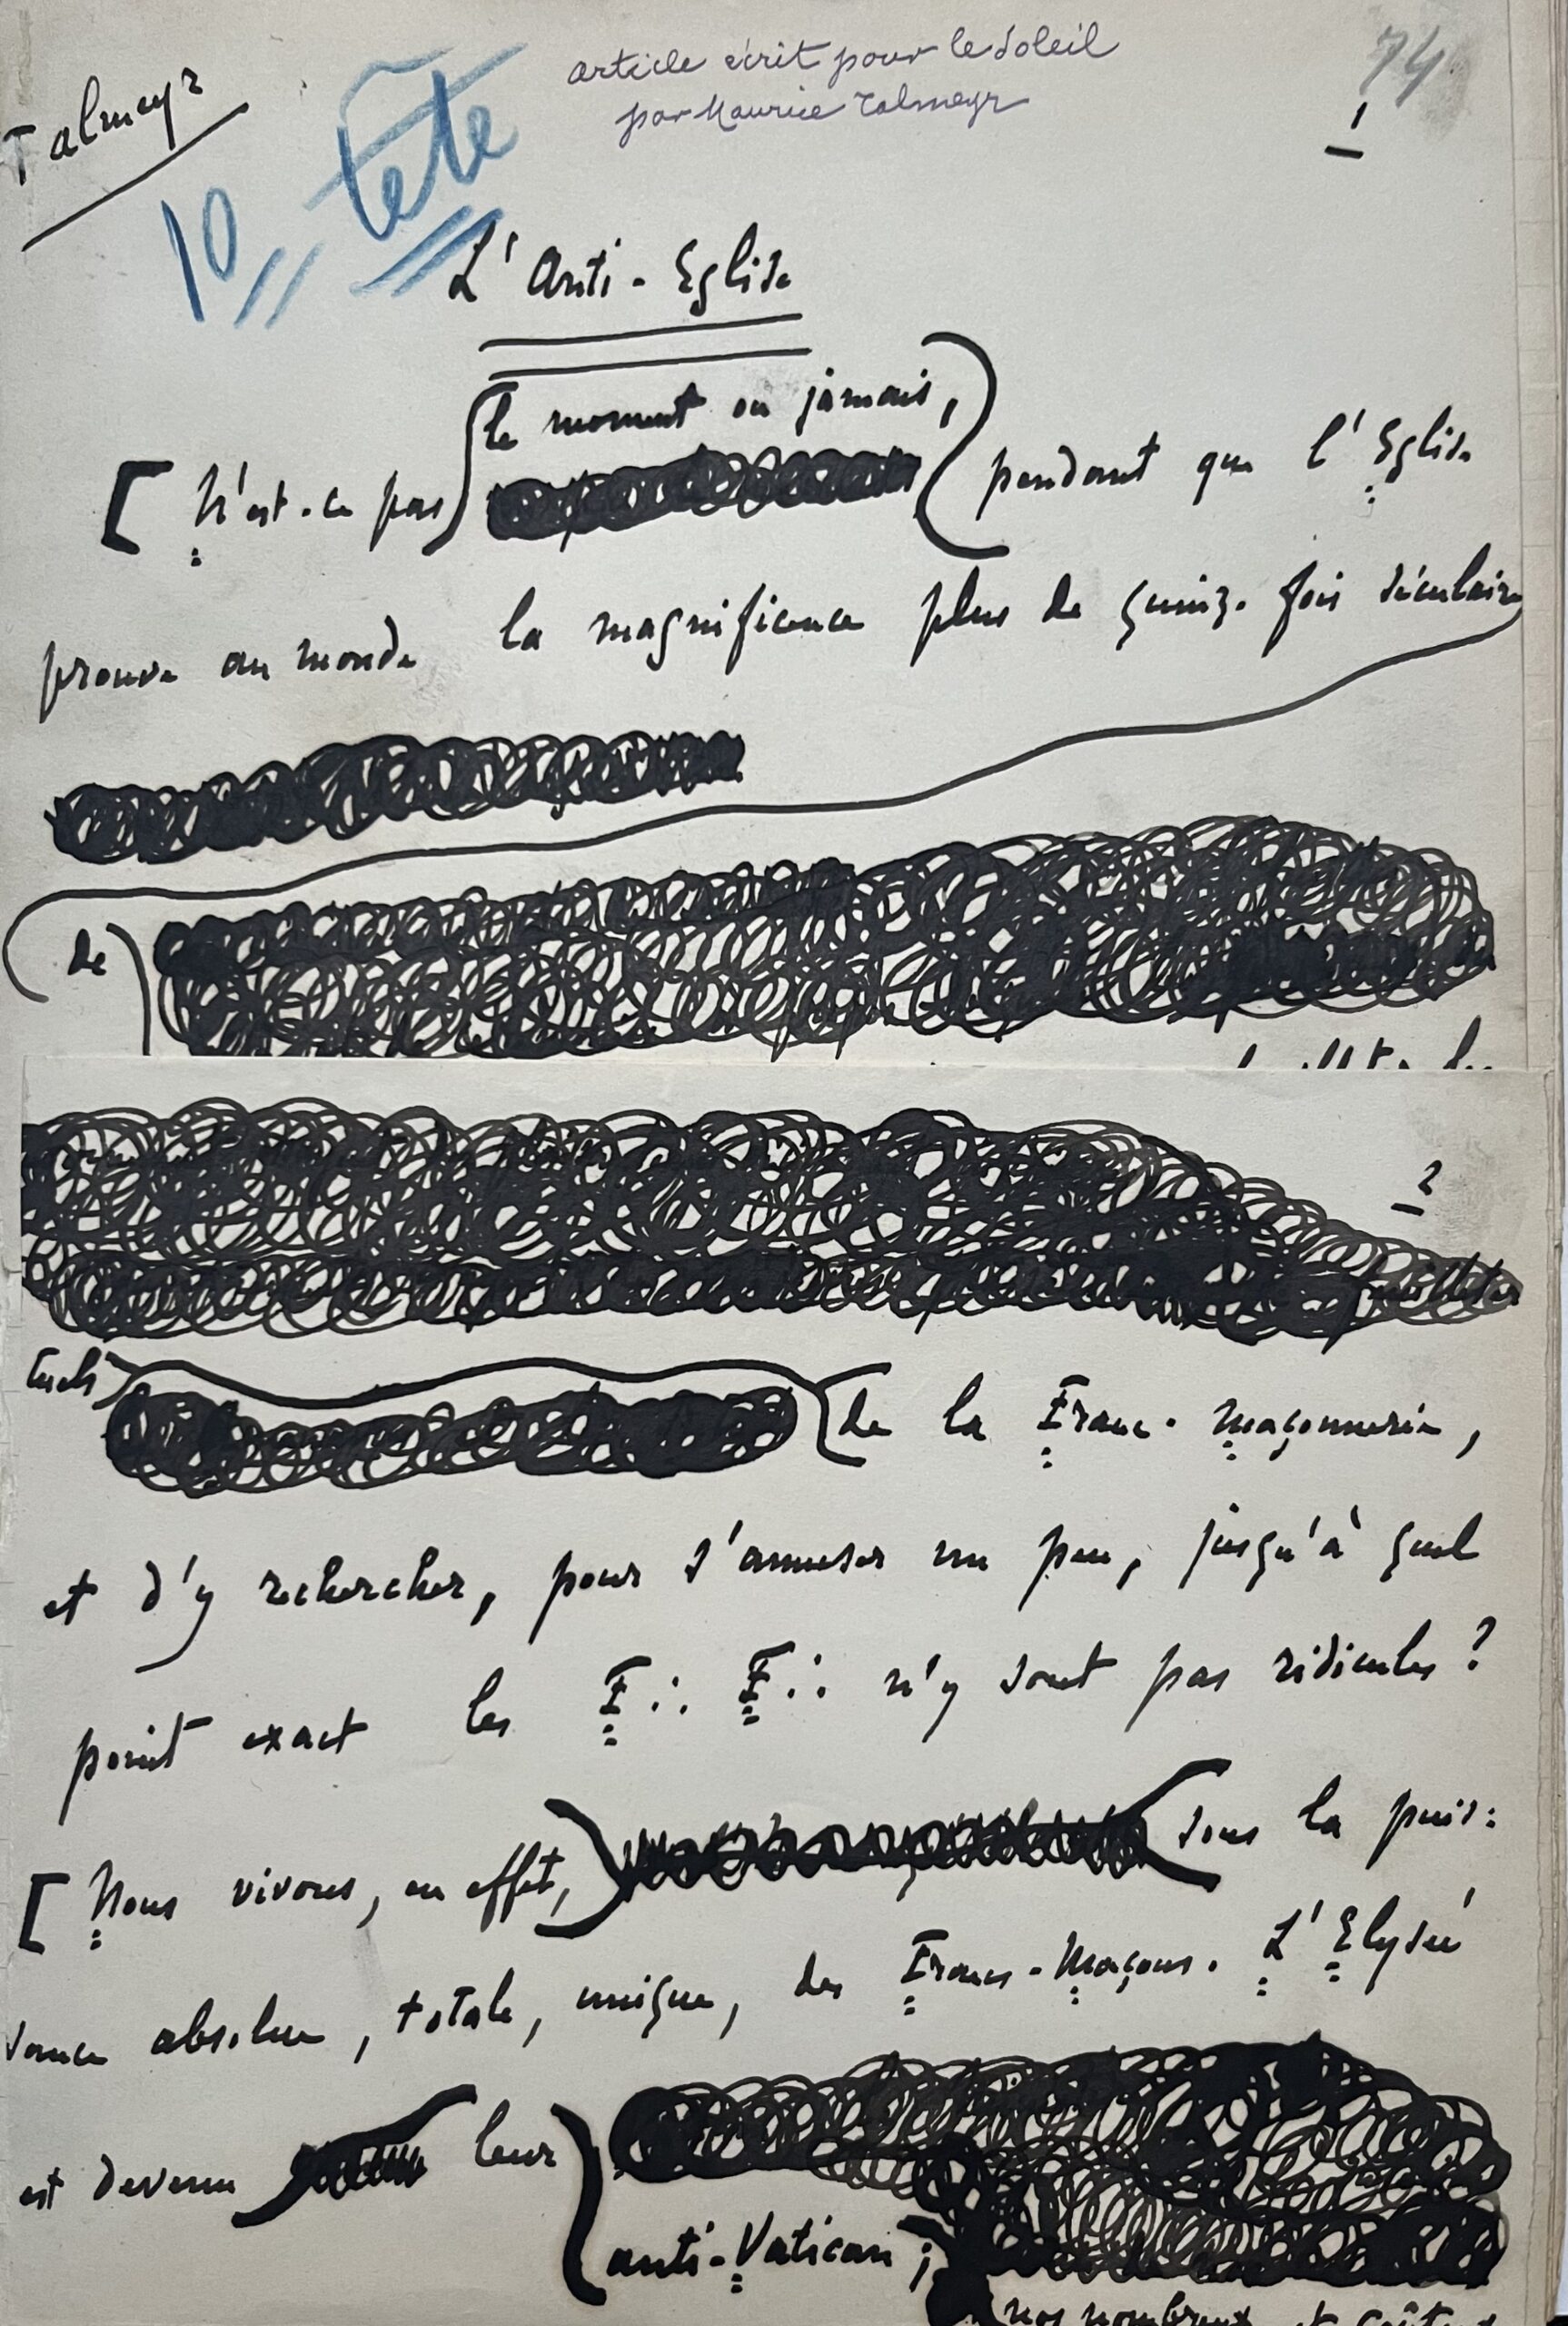 Talmeyr
article écrit pour le Soleil
par Maurice Talmeyr
74
1
10 Tête
L'Anti-Eglise
le moment ou jamais,
[ N'est-ce pas pendant que l'Eglise
prouve au monde la magnificence plus de quinze fois séculaire
de
2
tuels de la Franc-Maçonnerie,
et d'y rechercher, pour s'amuser un peu, jusqu'à quel
point exact les F∴ F∴ n'y sont pas ridicules ?
[ Nous vivons, en effet, sous la puis=
sance absolue, totale, unique, des Francs-Maçons. L'Elysée
est devenu leur
anti-Vatican ;
nos nombreux et